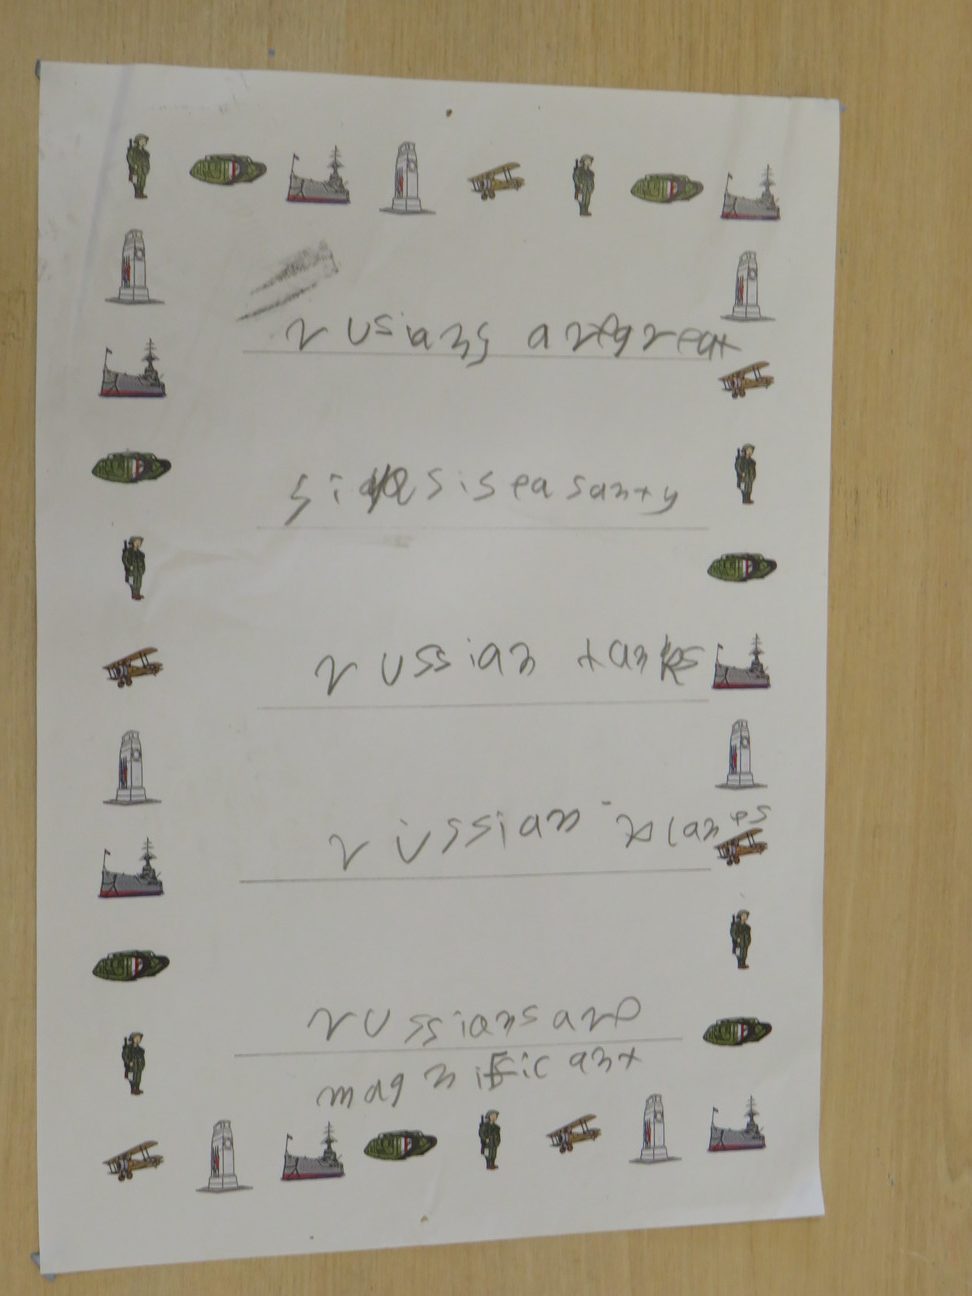 rusians are great
russian tanks
russian planes
russians are
magnificant